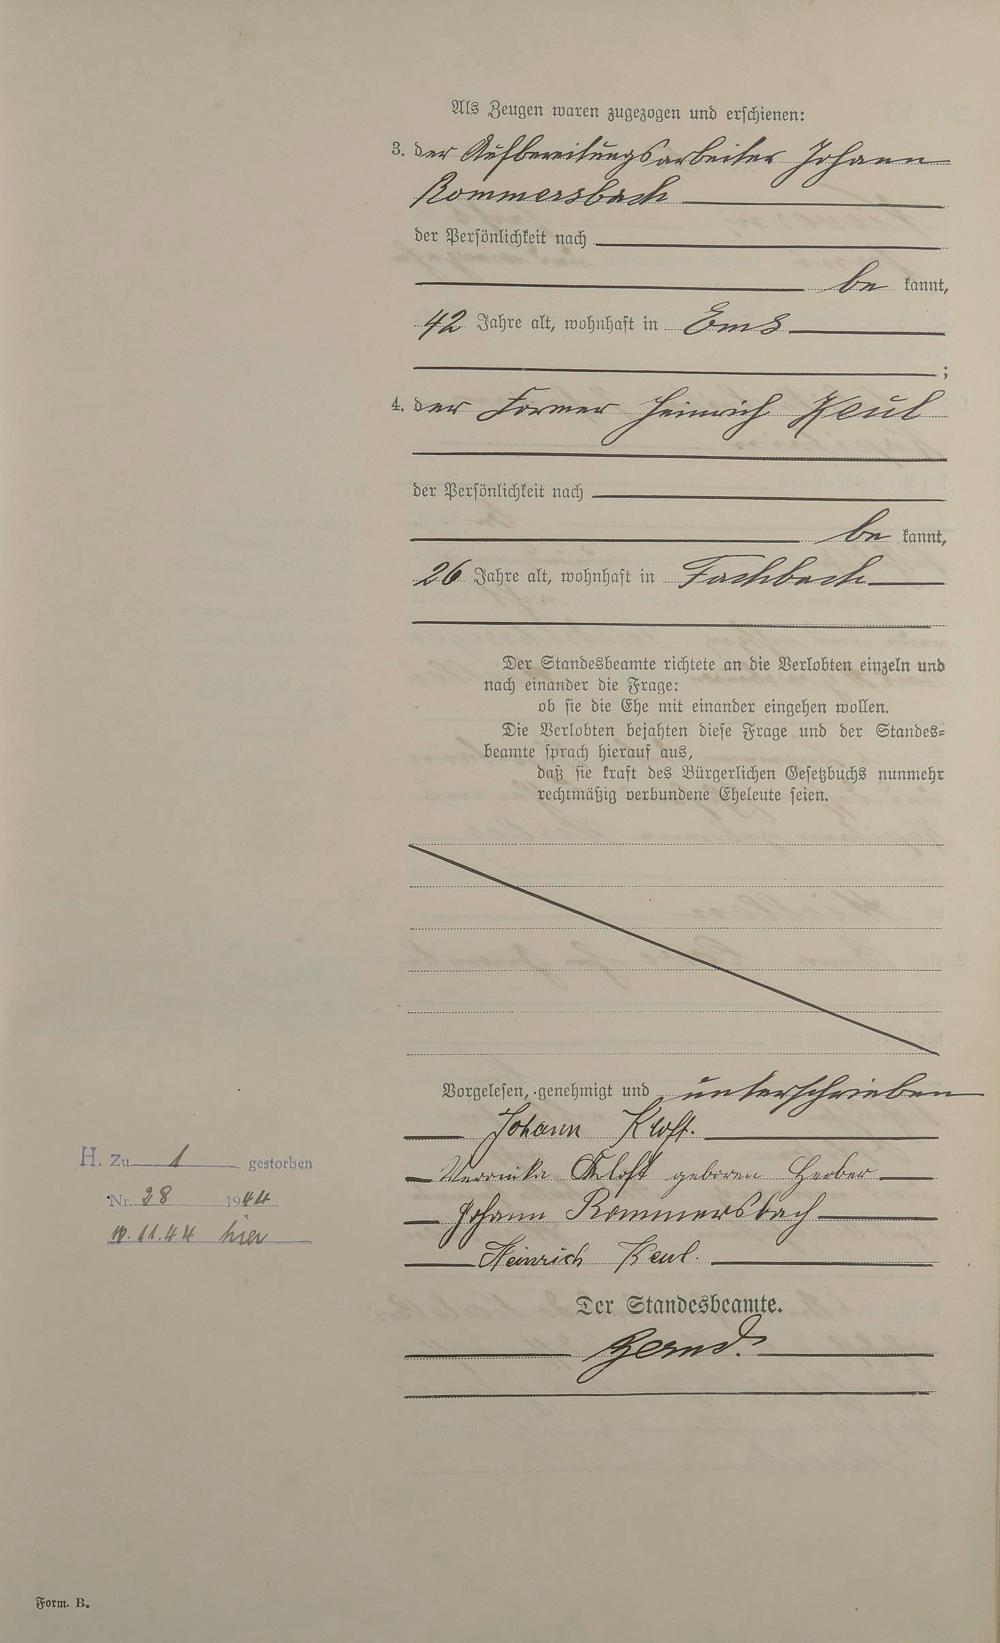 Als Zeugen waren zugezogen und erschienen:
3. der Aufbereitungsarbeiter Johann
Rommersbach
der Persönlichkeit nach
be kannt,
42 Jahre alt, wohnhaft in Ems
;
4. der Former Heinrich Keul
der Persönlichkeit nach
be kannt,
26 Jahre alt, wohnhaft in Fachbach
Der Standesbeamte richtete an die Verlobten einzeln und
nach einander die Frage:
ob sie die Ehe mit einander eingehen wollen.
Die Verlobten bejahten diese Frage und der Standes=
beamte sprach hierauf aus,
daß sie kraft des Bürgerlichen Gesetzbuchs nunmehr
rechtmäßig verbundene Eheleute seien.
Vorgelesen, genehmigt und unterschrieben
Johann Kloft.
Veronika Kloft geboren Herber
Johann Rommersbach
Heinrich Keul.
Der Standesbeamte.
H. Zu 1 gestorben
Nr. 28 1944
11.44 hier
Form. B.